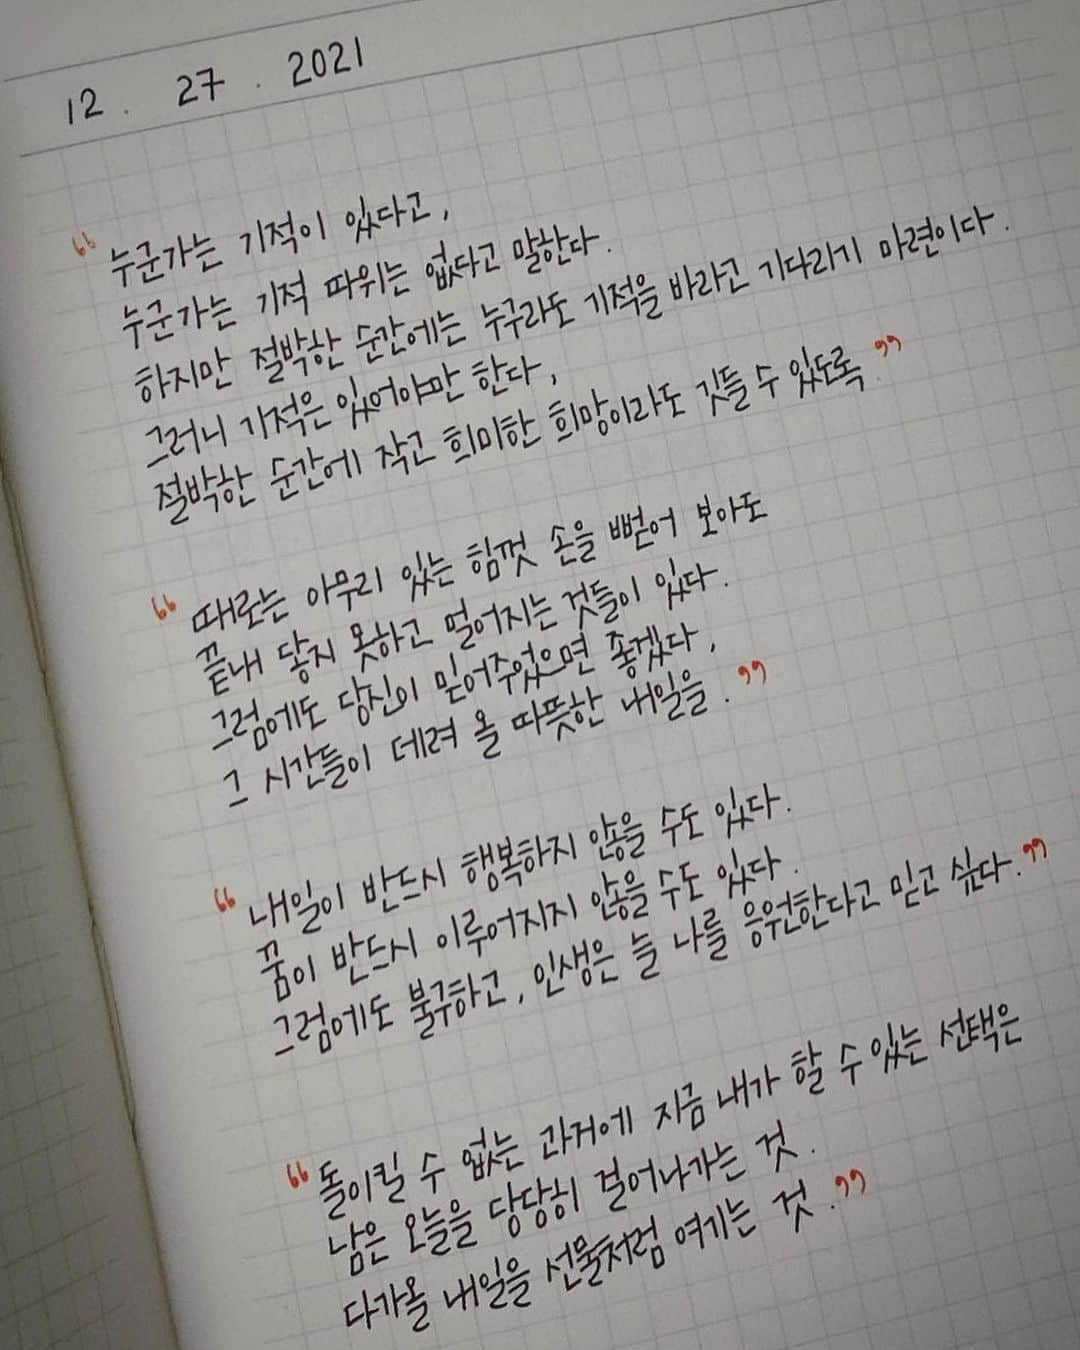 12 . 27 . 2021
“ 누군가는 기적이 있다고,
누군가는 기적 따위는 없다고 말한다.
하지만 절박한 순간에는 누구라도 기적을 바라고 기다리기 마련이다.
그러니 기적은 있어야만 한다,
절박한 순간에 작고 희미한 희망이라도 깃들 수 있도록. ”
“ 때로는 아무리 있는 힘껏 손을 뻗어 보아도
끝내 닿지 못하고 멀어지는 것들이 있다.
그럼에도 당신이 믿어주었으면 좋겠다,
그 시간들이 데려 올 따뜻한 내일을. ”
“ 내일이 반드시 행복하지 않을 수도 있다.
꿈이 반드시 이루어지지 않을 수도 있다.
그럼에도 불구하고, 인생은 늘 나를 응원한다고 믿고 싶다. ”
“ 돌이킬 수 없는 과거에 지금 내가 할 수 있는 선택은
남은 오늘을 당당히 걸어나가는 것.
다가올 내일을 선물처럼 여기는 것. ”